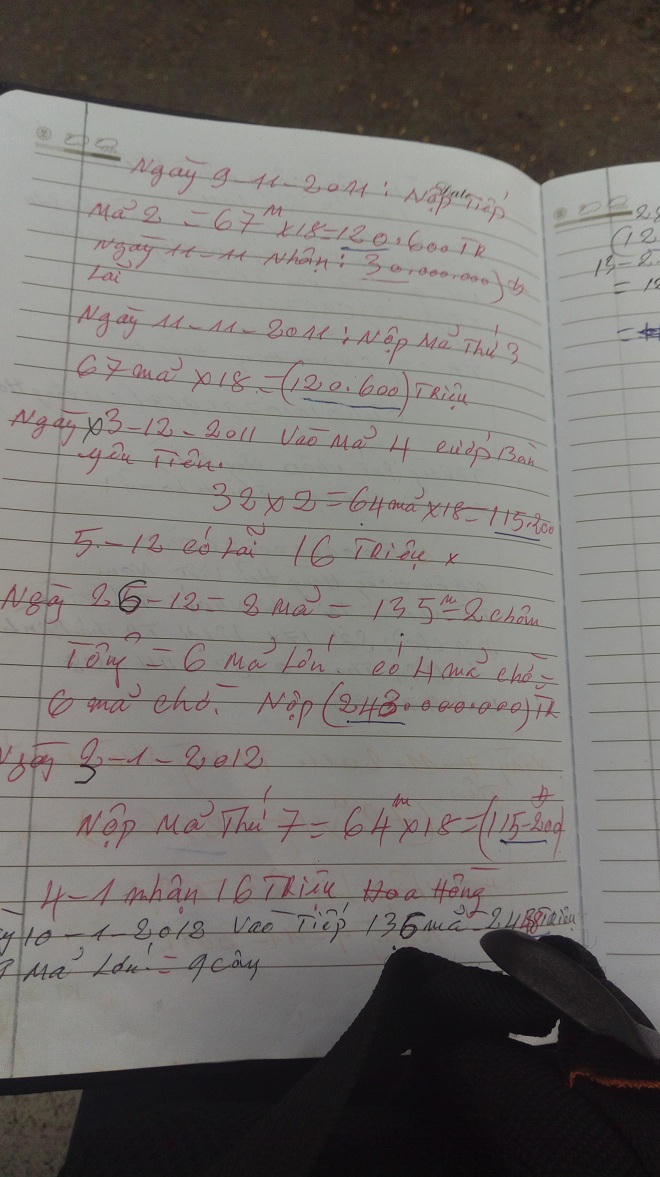 Ngày 9-11-2011: Nộp Tiếp
Mả 2 = 67 M x18=120.600 TR
Ngày 11-11 Nhận: 30.000.000) đ
Lãi
Ngày 11-11-2011: Nộp Mả Thứ 3
67 mả x18=(120.600) Triệu
Ngày 3-12-2011 Vào Mả 4 cướp Bàn
yêu Tiên.
32x2=64 mả x18=115.200
5-12 có Lãi 16 Triệu x
Ngày 26-12=2 Mả = 135 m=2 chân
Tổng = 6 Mả Lớn. có 4 mả chó=
6 mả chó. Nộp (243.000.000) TR
Ngày 3-1-2012
Nộp Mả Thứ 7=64 m x18=(115-200) đ
4-1 nhận 16 Triệu Hoa Hồng
10-1-2012 Vào Tiếp 136 mả
Mả Lớn = 9 cây
2.8
(12
13-2.
= 12
=